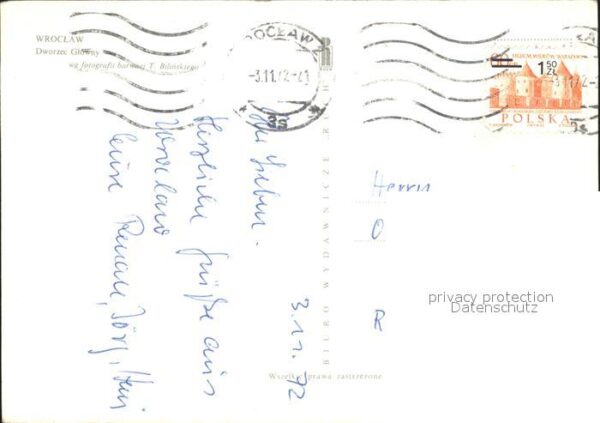 WROCŁAW
Dworzec Główny
wg fotografii barwnej T. Bilińskiego
WROCŁAW 2
-3.11.72-21
* 3s *
1,50 ZŁ
POLSKA
BIURO WYDAWNICZE RUCH
Wszelkie prawa zastrzeżone
3.11.72
Ihr Lieben.
Herzliche Grüße aus
Wroclaw
Eure Renate, Jörg,
Herrn
O
R
privacy protection
Datenschutz